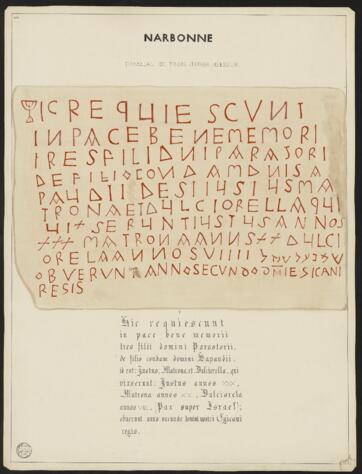 NARBONNE
ICREQUIESCUNT
INPACEBENEMEMORI
IRESFILIDNIPARATORI
DEFILIOCONDAMDNISA
PAUDII DESIIUSIUSMA
TRONAETDULCIORELLAQUI
UIXSERUNTIUSTUSANNOS
XXX MATRONAANNSXXDULCI
ORELAANNOSVIIII
OBVERUNTANNOSECUNDODMIESICANI
RESIS
Hic requiescunt
in pace bene memorii
tres filii domini Paratorii,
de filio condam domini Sapaudii,
id est: Justus, Matrona et Dulciorella, qui
vixserunt: Justus annos XXX,
Matrona annos XX, Dulciorela
annos VIIII, (Pax super Israel);
obuerunt anno secundo domini nostri Egicani
regis.